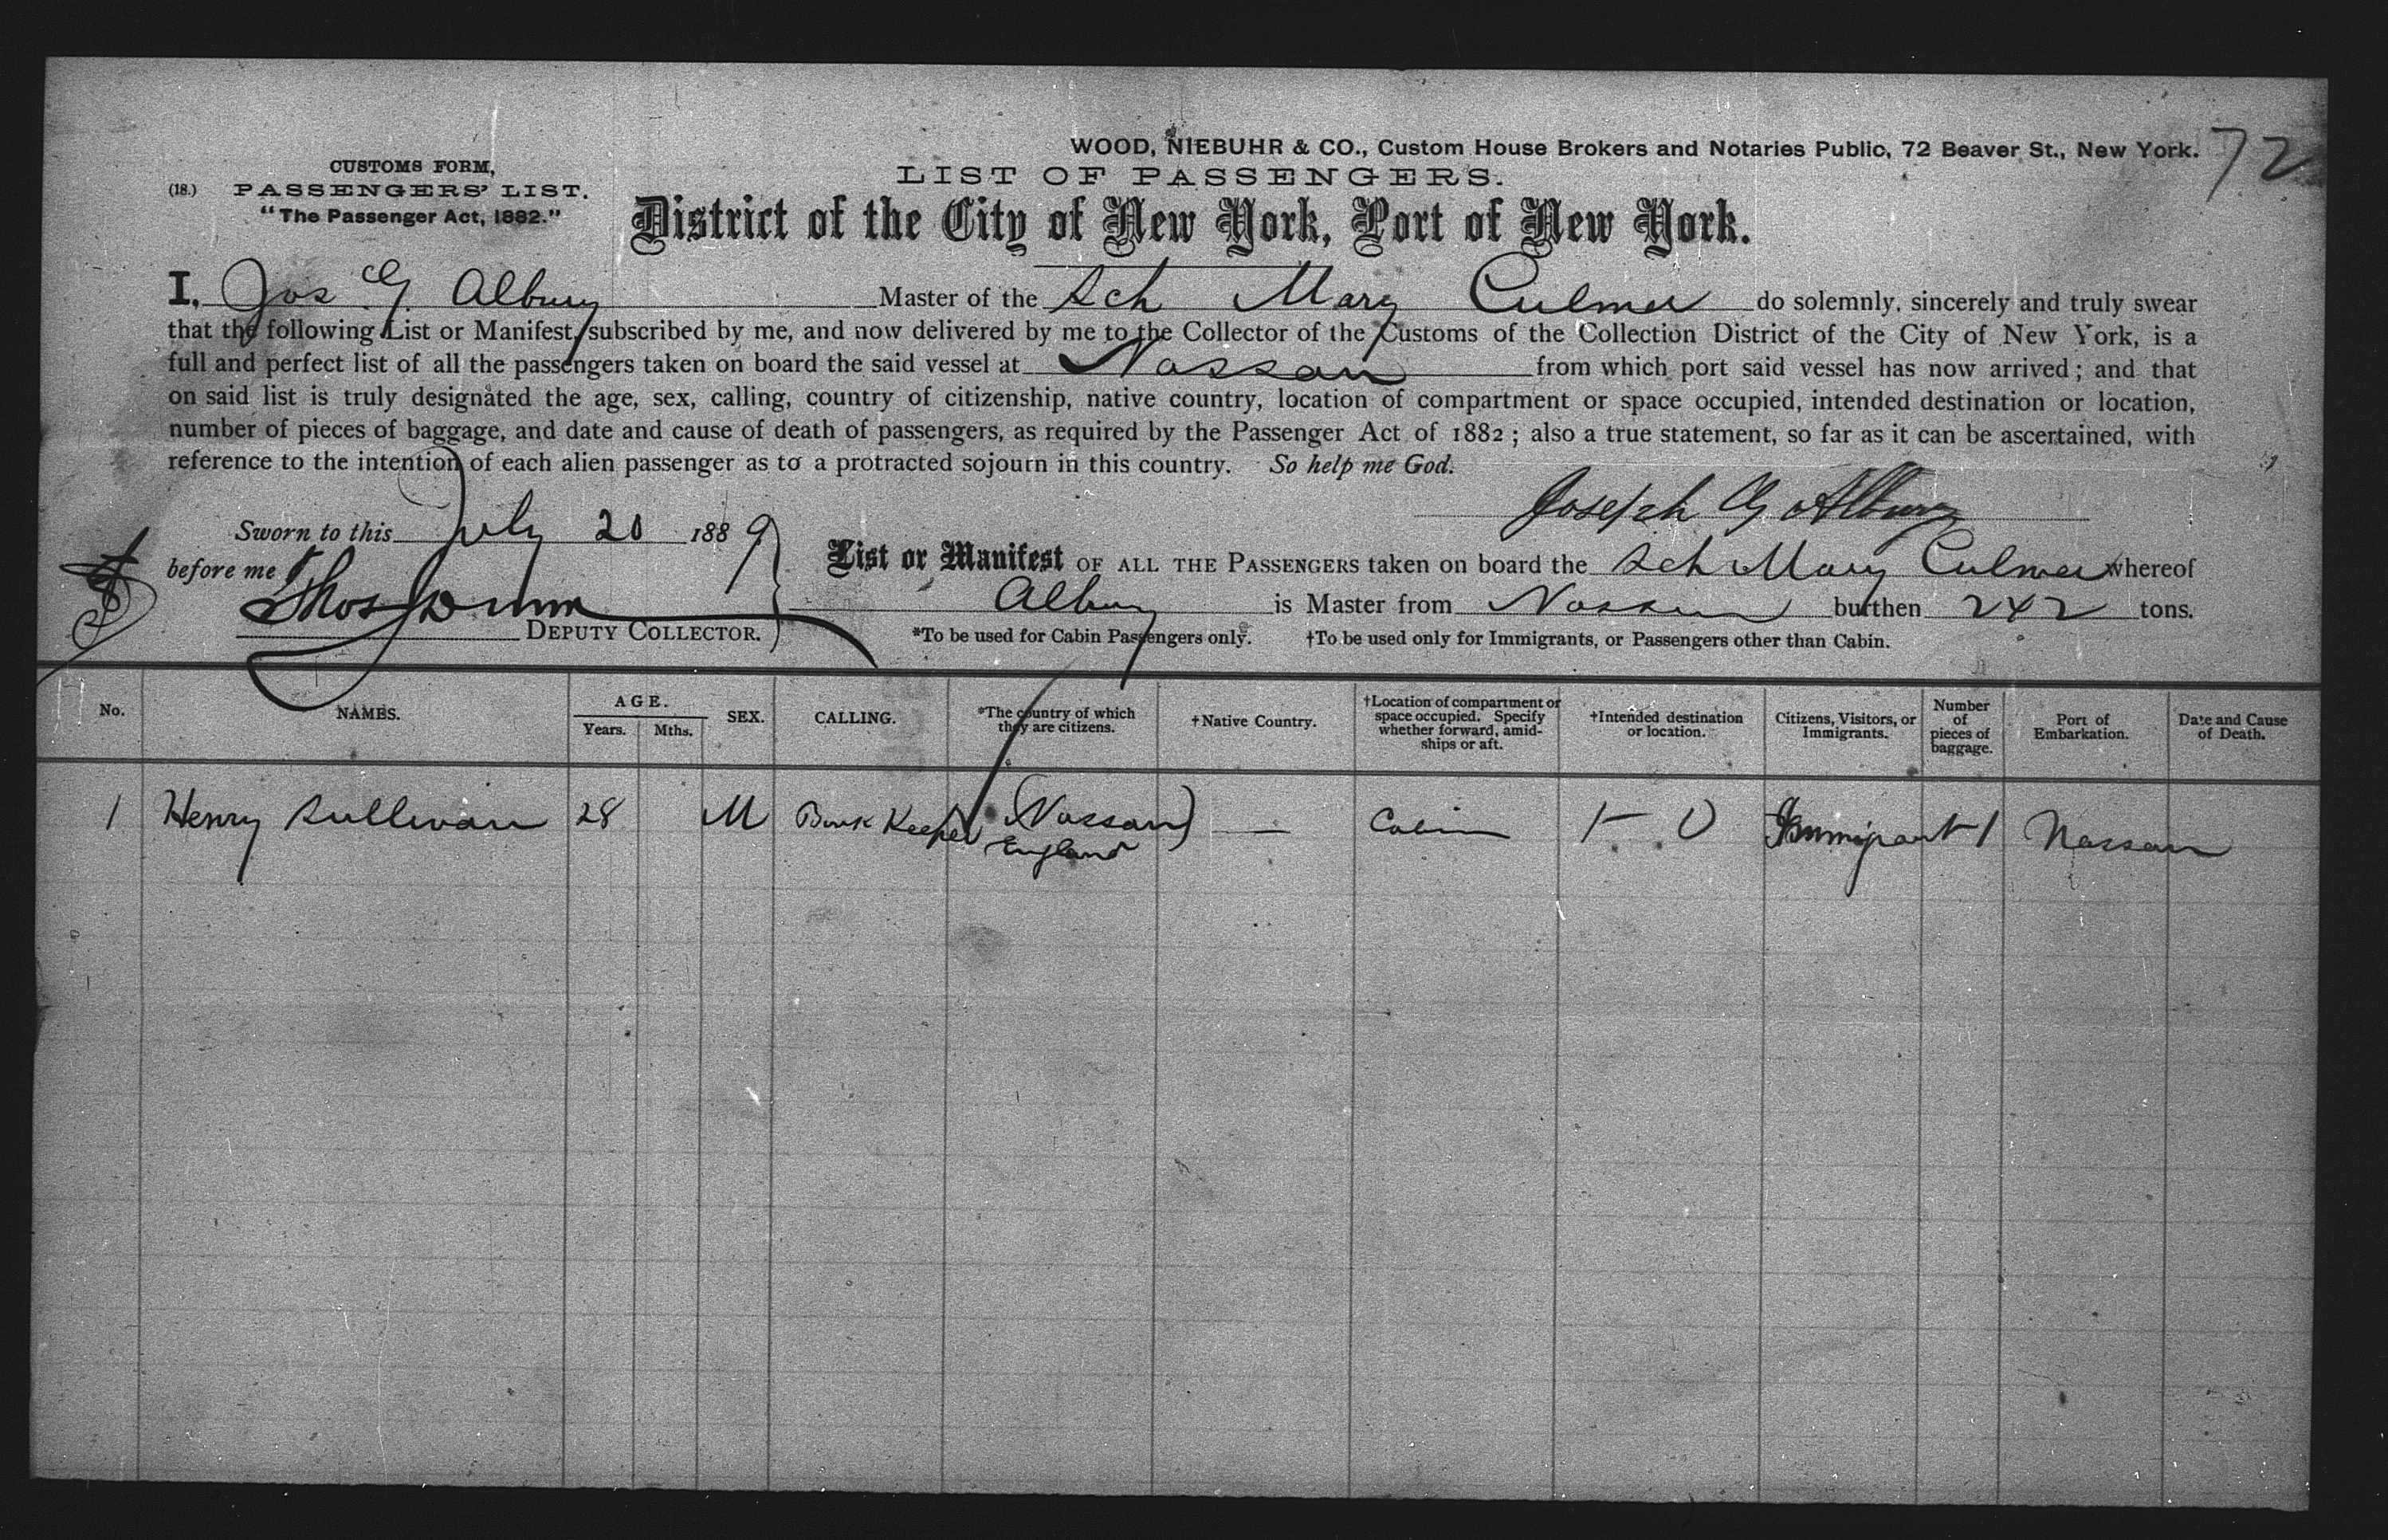 WOOD, NIEBUHR & CO., Custom House Brokers and Notaries Public, 72 Beaver St., New York.
72
CUSTOMS FORM,
(18.) PASSENGERS' LIST.
"The Passenger Act, 1882."
LIST OF PASSENGERS.
District of the City of New York, Port of New York.
I, Jos G Albury Master of the Sch Mary Culmer do solemnly, sincerely and truly swear
that the following List or Manifest, subscribed by me, and now delivered by me to the Collector of the Customs of the Collection District of the City of New York, is a
full and perfect list of all the passengers taken on board the said vessel at Nassau from which port said vessel has now arrived; and that
on said list is truly designated the age, sex, calling, country of citizenship, native country, location of compartment or space occupied, intended destination or location,
number of pieces of baggage, and date and cause of death of passengers, as required by the Passenger Act of 1882; also a true statement, so far as it can be ascertained, with
reference to the intention of each alien passenger as to a protracted sojourn in this country. So help me God.
Joseph G Albury
Sworn to this July 20 1889
before me
Thos Dunn
DEPUTY COLLECTOR.
List or Manifest OF ALL THE PASSENGERS taken on board the Sch Mary Culmer whereof
Albury is Master from Nassau burthen 242 tons.
*To be used for Cabin Passengers only. †To be used only for Immigrants, or Passengers other than Cabin.
No. NAMES. AGE. Years. Mths. SEX. CALLING. *The country of which they are citizens. †Native Country. †Location of compartment or space occupied. Specify whether forward, amidships or aft. †Intended destination or location. Citizens, Visitors, or Immigrants. Number of pieces of baggage. Port of Embarkation. Date and Cause of Death.
1 Henry Sullivan 28 M Book Keeper (Nassau) — Cabin Immigrant 1 Nassau
England